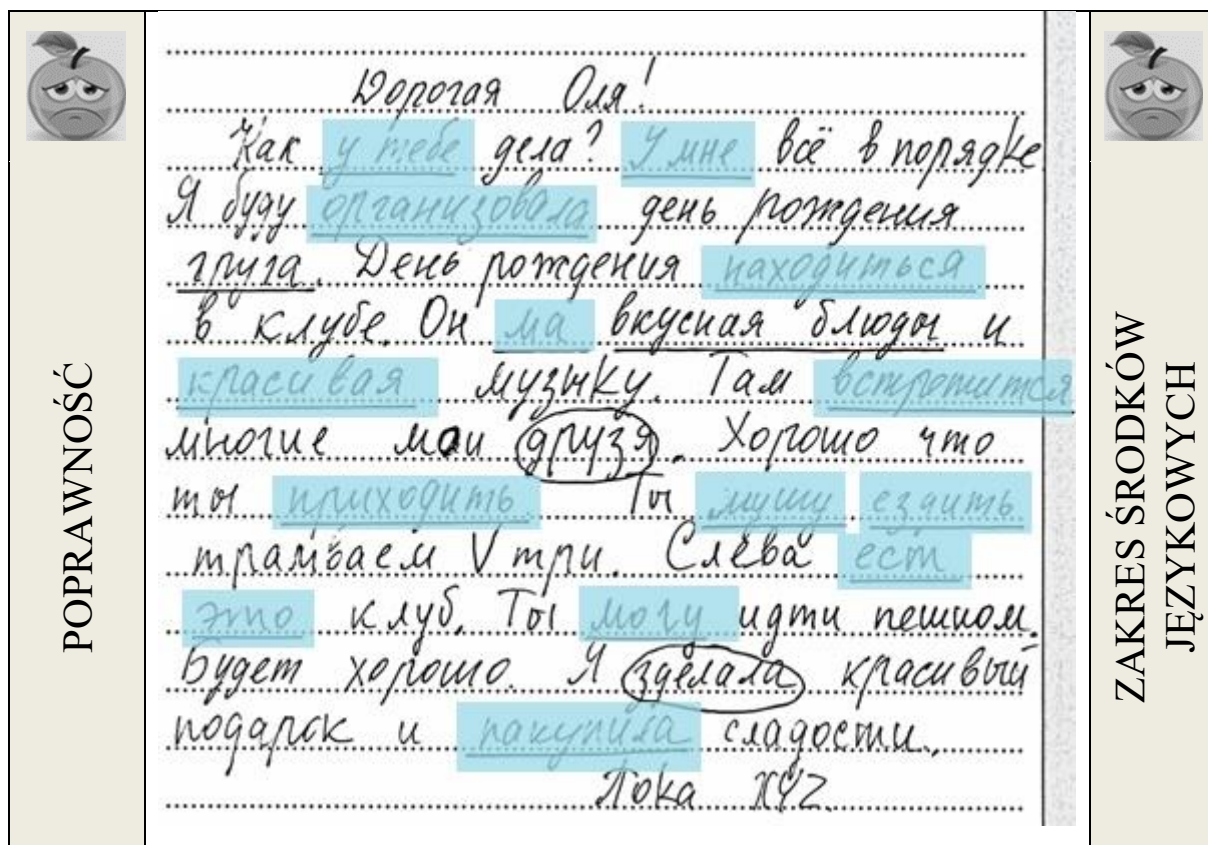 POPRAWNOŚĆ
Дорогая Оля!
Как у тебе дела? У мне всё в порядке
Я буду организовала день рождения
груга. День рождения находиться
в клубе. Он ма вкусная блюды и
красивая музыку. Там встретится
многие мои друзя. Хорошо что
ты приходить Ты мушу ездить
трамваем V три. Слева ест
это клуб. Ты могу идти пешком.
Будет хорошо. Я зделала красивый
подарок и пакупила сладости.
Пока XYZ.
ZAKRES ŚRODKÓW
JĘZYKOWYCH